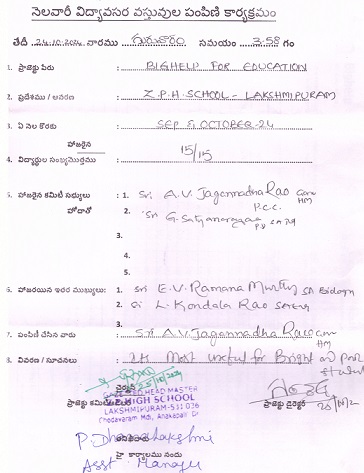 నెలవారీ విద్యావసర వస్తువుల పంపిణి కార్యక్రమం
తేదీ 24.10.2024 వారము గురువారం సమయం 3:58 గం
1. ప్రాజెక్టు పేరు : BIGHELP FOR EDUCATION
2. ప్రదేశము / ఆవరణ : Z.P.H SCHOOL - LAKSHMIPURAM
3. ఏ నెల కొరకు : SEP & OCTOBER-24
హాజరైన
4. విద్యార్థుల సంఖ్య/మొత్తము : 15/15
5. హాజరైన కమిటీ సభ్యులు : 1. Sri A.V. Jagannadha Rao HM
హోదాతో 2. Sri G. Satyanarayana
3.
4.
5.
6. హాజరయిన ఇతర ముఖ్యులు : 1. Sri E.V. Ramana Murthy SA
2. Sri L. Kondala Rao
3.
7. పంపిణి చేసిన వారు : Sri A.V. Jagannadha Rao HM
8. వివరణ / సూచనలు : Most useful for Bright and poor student
చైర్మన్
HEAD MASTER
Z.P.HIGH SCHOOL
ప్రాజెక్టు కమిటీ LAKSHMIPURAM-511 036 ప్రాజెక్టు డైరెక్టర్
Chodavaram Mdl, Anakapalli Dt
P. Dhanalakshmi
హై కార్యాలయం నందు
Asst. Manager